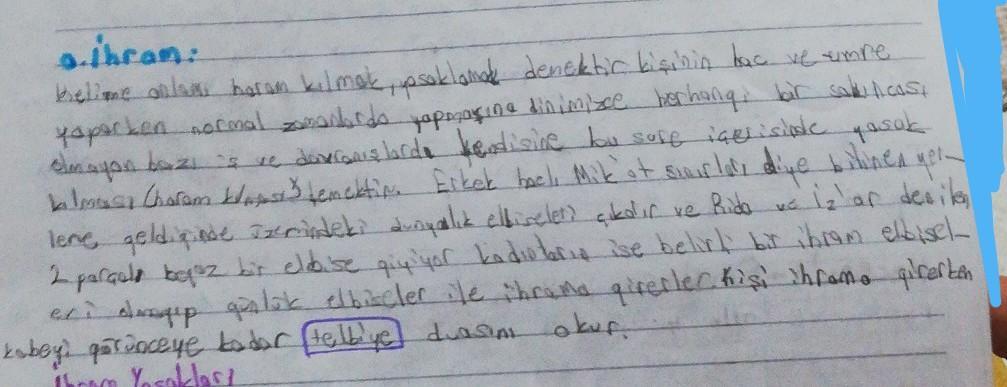 a. İhram:
kelime anlamı haram kılmak, yasaklamak demektir kişinin hac ve umre
yaparken normal zamanlarda yapmasına dinimizce herhangi bir sakıncası
olmayan bazı iş ve davranışlarda kendisine bu süre içerisinde yasak
kılması (haram kılması) demektir. Erkek hacı Mikat sınırları diye bilinen yer-
lere geldiğinde üzerindeki dünyalık elbiseleri çıkalır ve Rida ve İzar denilen
2 parçalı beyaz bir elbise giyiyor kadınların ise belirli bir ihram elbisel-
eri olmayıp günlük elbiseler ile ihrama girerler. kişi ihrama girerken
kabeyi görünceye kadar telbiye duasını okur.
İhram Yasakları